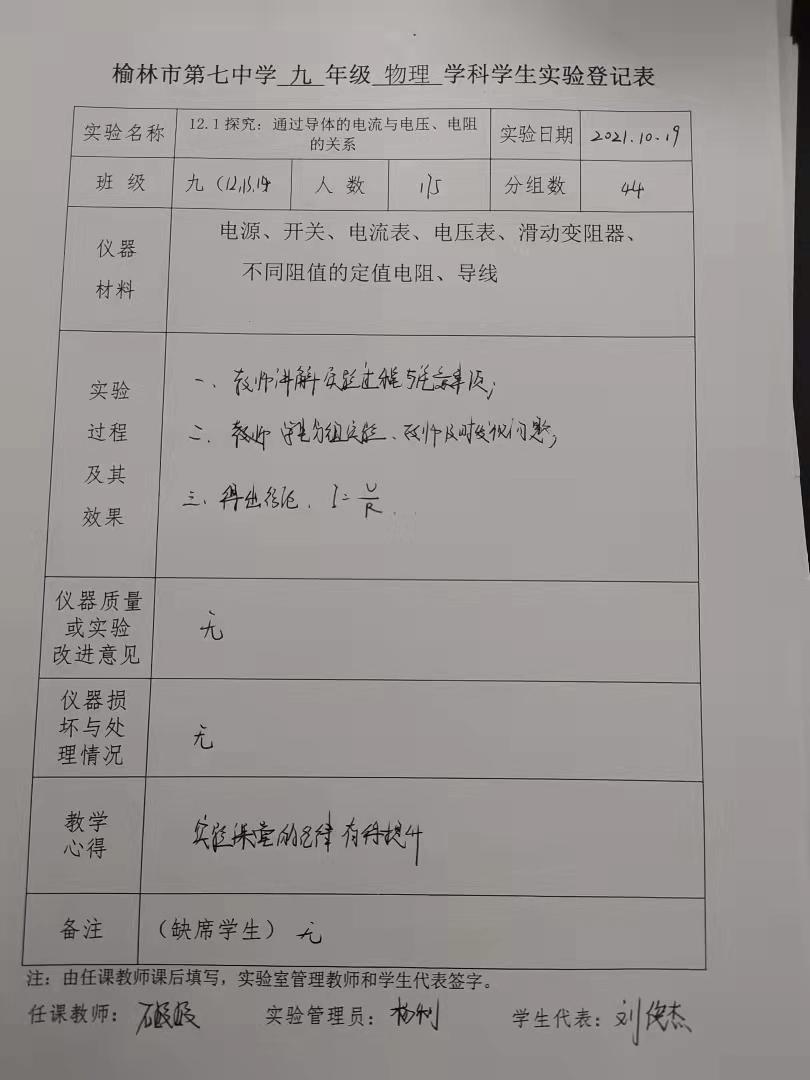 榆林市第七中学 九 年级 物理 学科学生实验登记表
实验名称 12.1探究：通过导体的电流与电压、电阻的关系 实验日期 2021.10.19
班 级 九（12,13,14 人 数 175 分组数 44
仪器材料
电源、开关、电流表、电压表、滑动变阻器、
不同阻值的定值电阻、导线
实验过程及其效果
一、教师讲解实验过程与注意事项；
二、教师 学生分组实验、教师及时发现问题；
三、得出结论、I=U/R.
仪器质量或实验改进意见 无
仪器损坏与处理情况 无
教学心得 实验课堂的纪律有待提升
备注 （缺席学生）无
注：由任课教师课后填写，实验室管理教师和学生代表签字。
任课教师： 实验管理员： 学生代表：刘俊杰